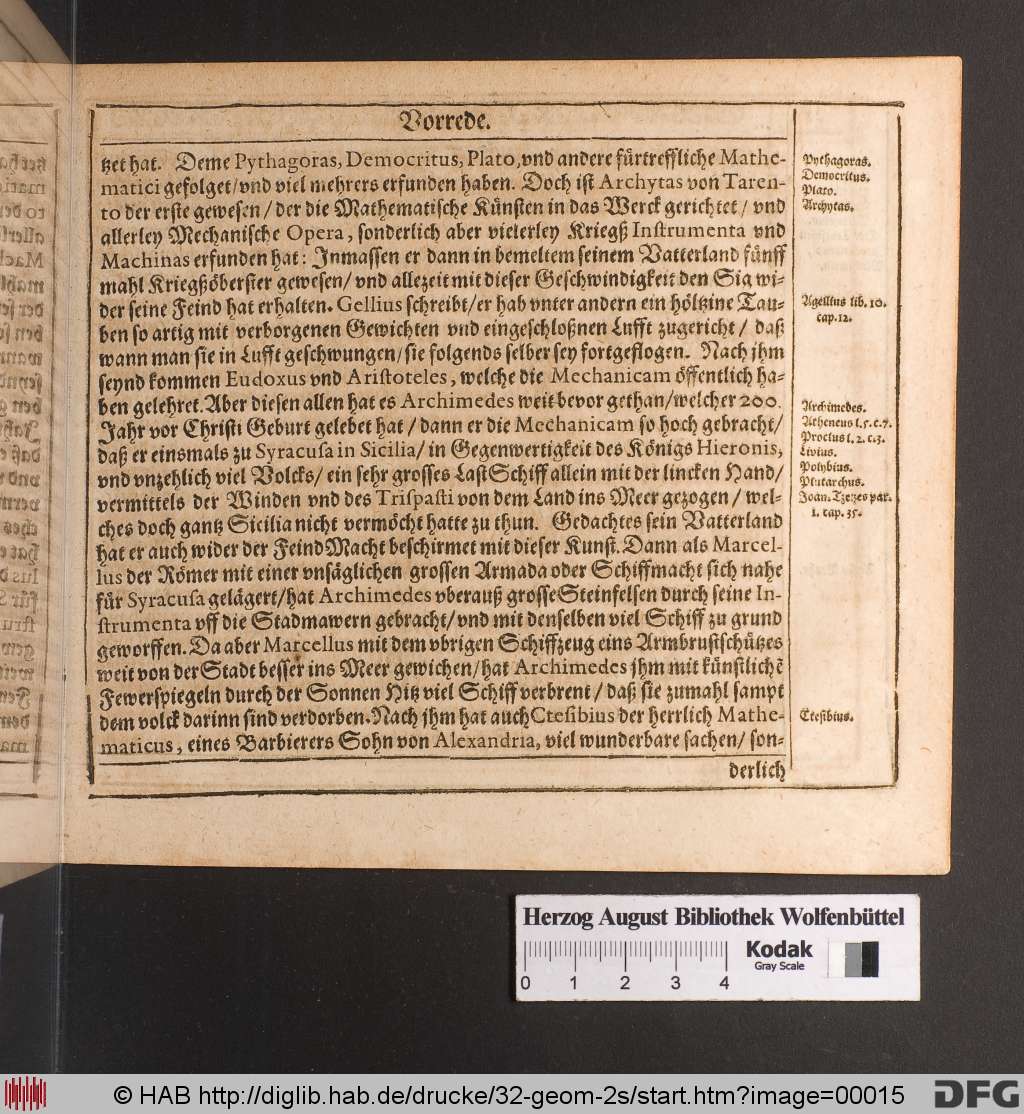 Vorrede.
tzet hat. Deme Pythagoras, Democritus, Plato, vnd andere fürtreffliche Mathe-
matici gefolget/vnd viel mehrers erfunden haben. Doch ist Archytas von Taren-
to der erste gewesen/der die Mathematische Künsten in das Werck gerichtet/ vnd
allerley Mechanische Opera, sonderlich aber vielerley Kriegß Instrumenta vnd
Machinas erfunden hat: Jnmassen er dann in bemeltem seinem Vatterland fünff
mahl Kriegßöberster gewesen/ vnd allezeit mit dieser Geschwindigkeit den Sig wi-
der seine Feind hat erhalten. Gellius schreibt/er hab vnter andern ein höltzine Tau-
ben so artig mit verborgenen Gewichten vnd eingeschloßnen Lufft zugericht/ daß
wann man sie in Lufft geschwungen/sie folgends selber sey fortgeflogen. Nach jhm
seynd kommen Eudoxus vnd Aristoteles, welche die Mechanicam öffentlich ha-
ben gelehret. Aber diesen allen hat es Archimedes weit bevor gethan/welcher 200.
Jahr vor Christi Geburt gelebet hat/dann er die Mechanicam so hoch gebracht/
daß er einsmals zu Syracusa in Sicilia/ in Gegenwertigkeit des Königs Hieronis,
vnd vnzehlich viel Volcks/ ein sehr grosses Last Schiff allein mit der lincken Hand/
vermittels der Winden vnd des Trispasti von dem Land ins Meer gezogen/ wel-
ches doch gantz Sicilia nicht vermöcht hatte zu thun. Gedachtes sein Vatterland
hat er auch wider der Feind Macht beschirmet mit dieser Kunst. Dann als Marcel-
lus der Römer mit einer vnsäglichen grossen Armada oder Schiffmacht sich nahe
für Syracusa gelägert/hat Archimedes vberauß grosse Steinfelsen durch seine In-
strumenta vff die Stadmawern gebracht/vnd mit denselben viel Schiff zu grund
geworffen. Da aber Marcellus mit dem vbrigen Schiffzeug eins Armbrustschützes
weit von der Stadt besser ins Meer gewichen/hat Archimedes jhm mit künstlichẽ
Fewerspiegeln durch der Sonnen Hitz viel Schiff verbrent/daß sie zumahl sampt
dem volck darinn sind verdorben. Nach jhm hat auch Ctesibius der herrlich Mathe-
maticus, eines Barbierers Sohn von Alexandria, viel wunderbare sachen/ son-
derlich
Pythagoras.
Democritus.
Plato.
Archytas.
Agellius lib. 10.
cap. 12.
Archimedes.
Atheneus l. 5. c. 7.
Proclus l. 2. c. 3.
Livius.
Polybius.
Plutarchus.
Joan. Tzetzes par.
1. cap. 35.
Ctesibius.
Herzog August Bibliothek Wolfenbüttel
0 1 2 3 4
Kodak
Gray Scale
© HAB http://diglib.hab.de/drucke/32-geom-2s/start.htm?image=00015
DFG